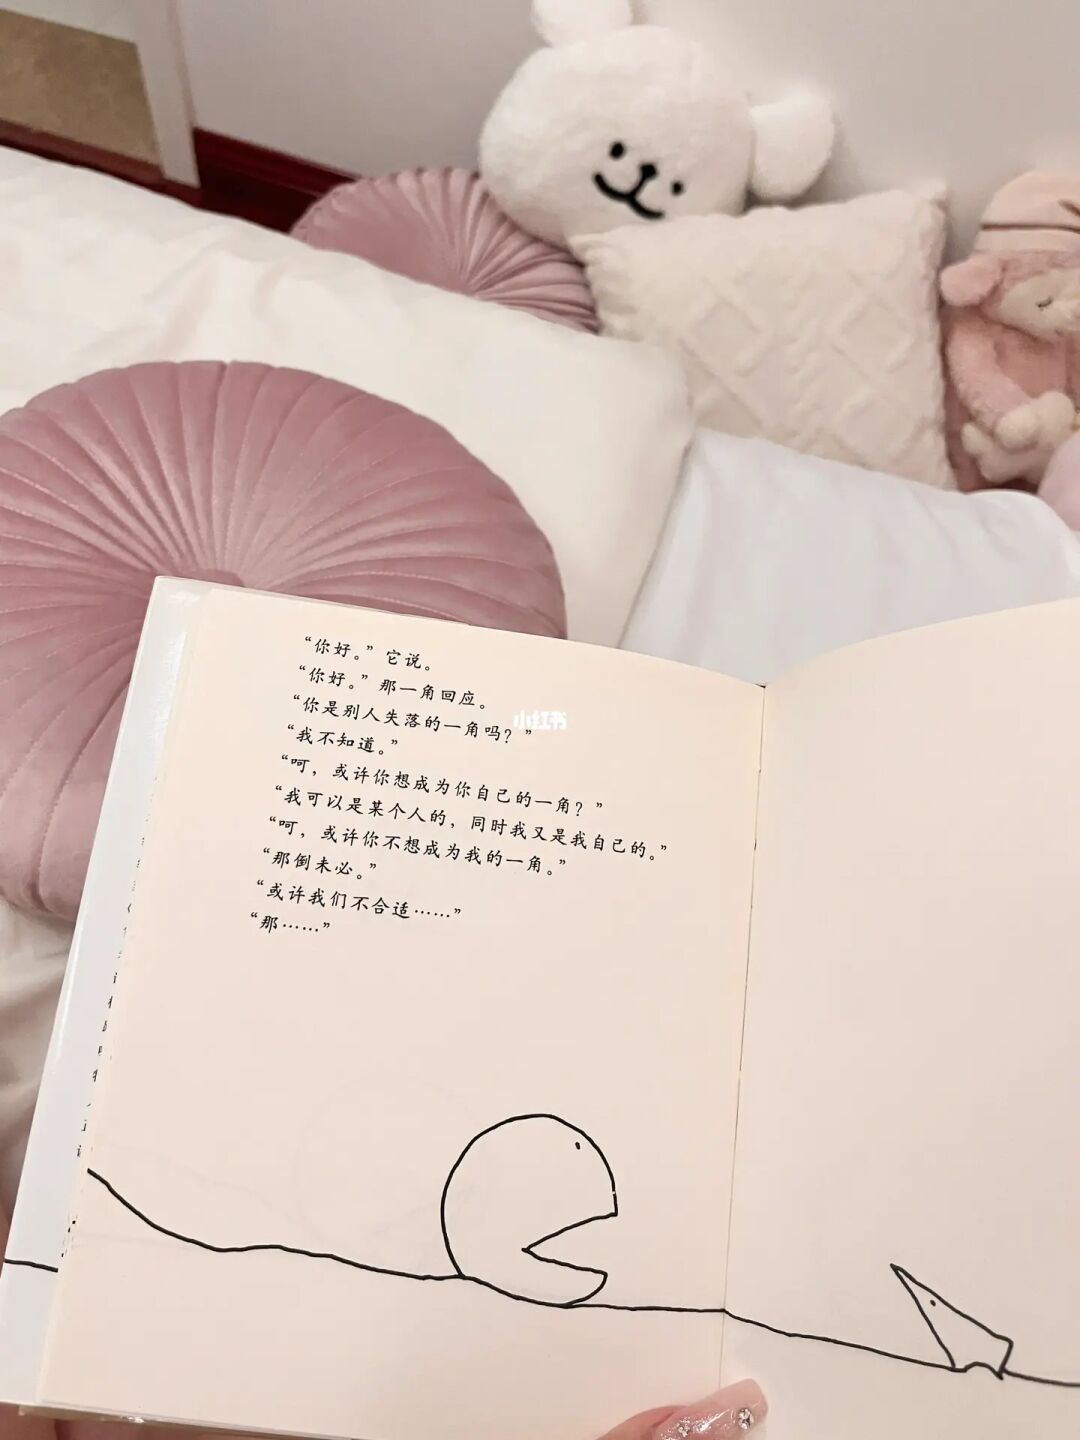 “你好。”它说。
“你好。”那一角回应。
“你是别人失落的一角吗？”
“我不知道。”
“呵，或许你想成为你自己的一角？”
“我可以是某个人的，同时我又是我自己的。”
“呵，或许你不想成为我的一角。”
“那倒未必。”
“或许我们不合适……”
“那……”
小红书